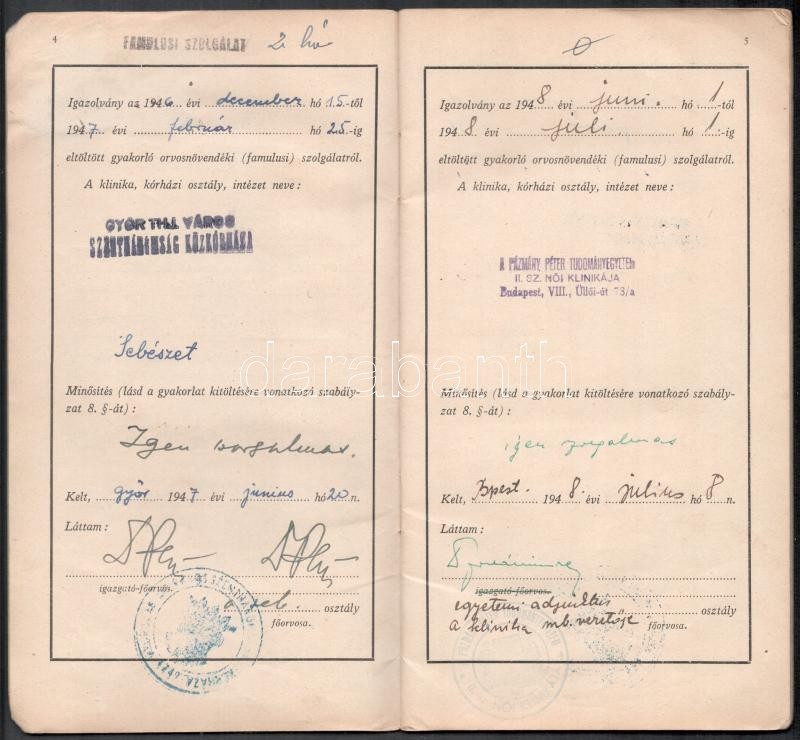 4
FAMULUSI SZOLGÁLAT 2 hó
Igazolvány az 1946 évi december hó 15.-től
1947 évi február hó 25-ig
eltöltött gyakorló orvosnövendéki (famulusi) szolgálatról.
A klinika, kórházi osztály, intézet neve:
GYŐR THJ. VÁROS
SZENTHÁROMSÁG KÖZKÓRHÁZA
Sebészet
Minősítés (lásd a gyakorlat kitöltésére vonatkozó szabály-
zat 8. §-át):
Igen szorgalmas.
Kelt, Győr 1947 évi junius hó 20 n.
Láttam:
igazgató-főorvos.
seb. osztály
főorvosa.
5
Igazolvány az 1948 évi juni. hó 1-tól
1948 évi juli. hó 1.-ig
eltöltött gyakorló orvosnövendéki (famulusi) szolgálatról.
A klinika, kórházi osztály, intézet neve:
A PÁZMÁNY PÉTER TUDOMÁNYEGYETEM
II. SZ. NŐI KLINIKÁJA
Budapest, VIII., Üllői-út 78/a
Minősítés (lásd a gyakorlat kitöltésére vonatkozó szabály-
zat 8. §-át):
igen szorgalmas
Kelt, Bpest. 1948. évi július hó 8 n.
Láttam:
igazgató-főorvos.
egyetemi adjunktus osztály
a klinika mb. vezetője főorvosa.
darabanth.com